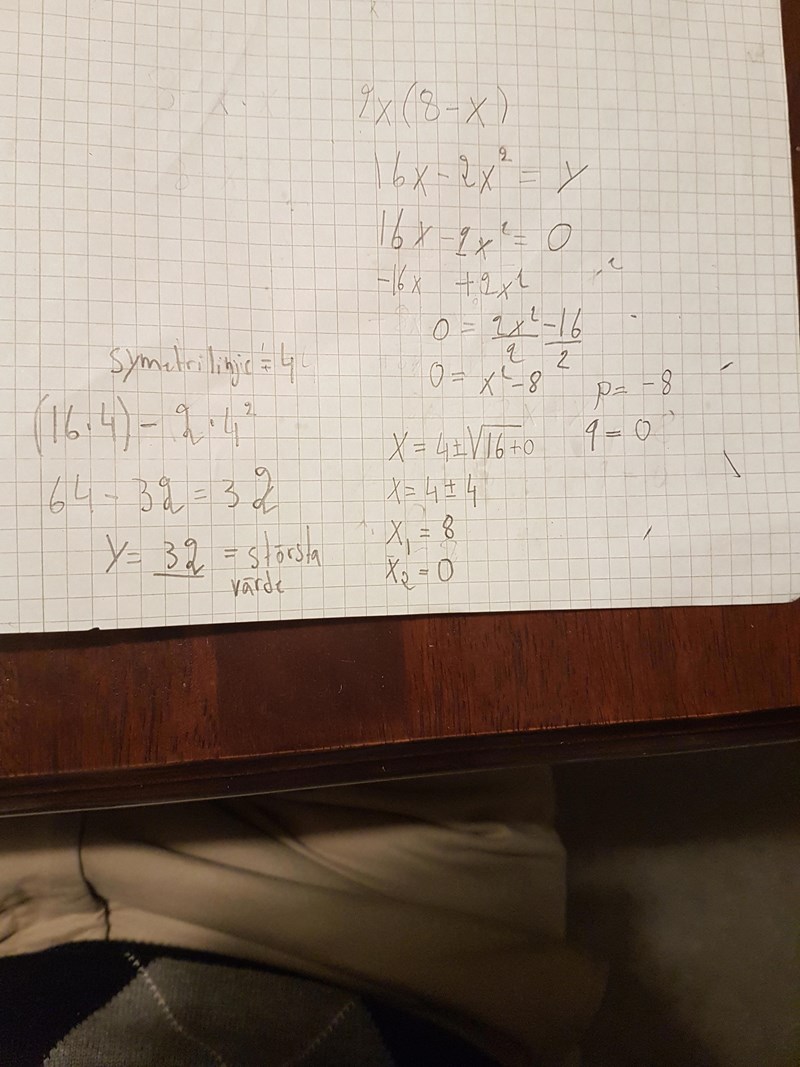 2x(8-x)
16x-2x² = y
16x-2x² = 0
-16x +2x²
0 = 2x²/2 -16/2
0 = x²-8 p= -8
q = 0
x = 4±√16+0
x = 4±4
x₁ = 8
x₂ = 0
Symetrilinje = 4
(16·4) - 2·4²
64 - 32 = 32
y = 32 = största
värde